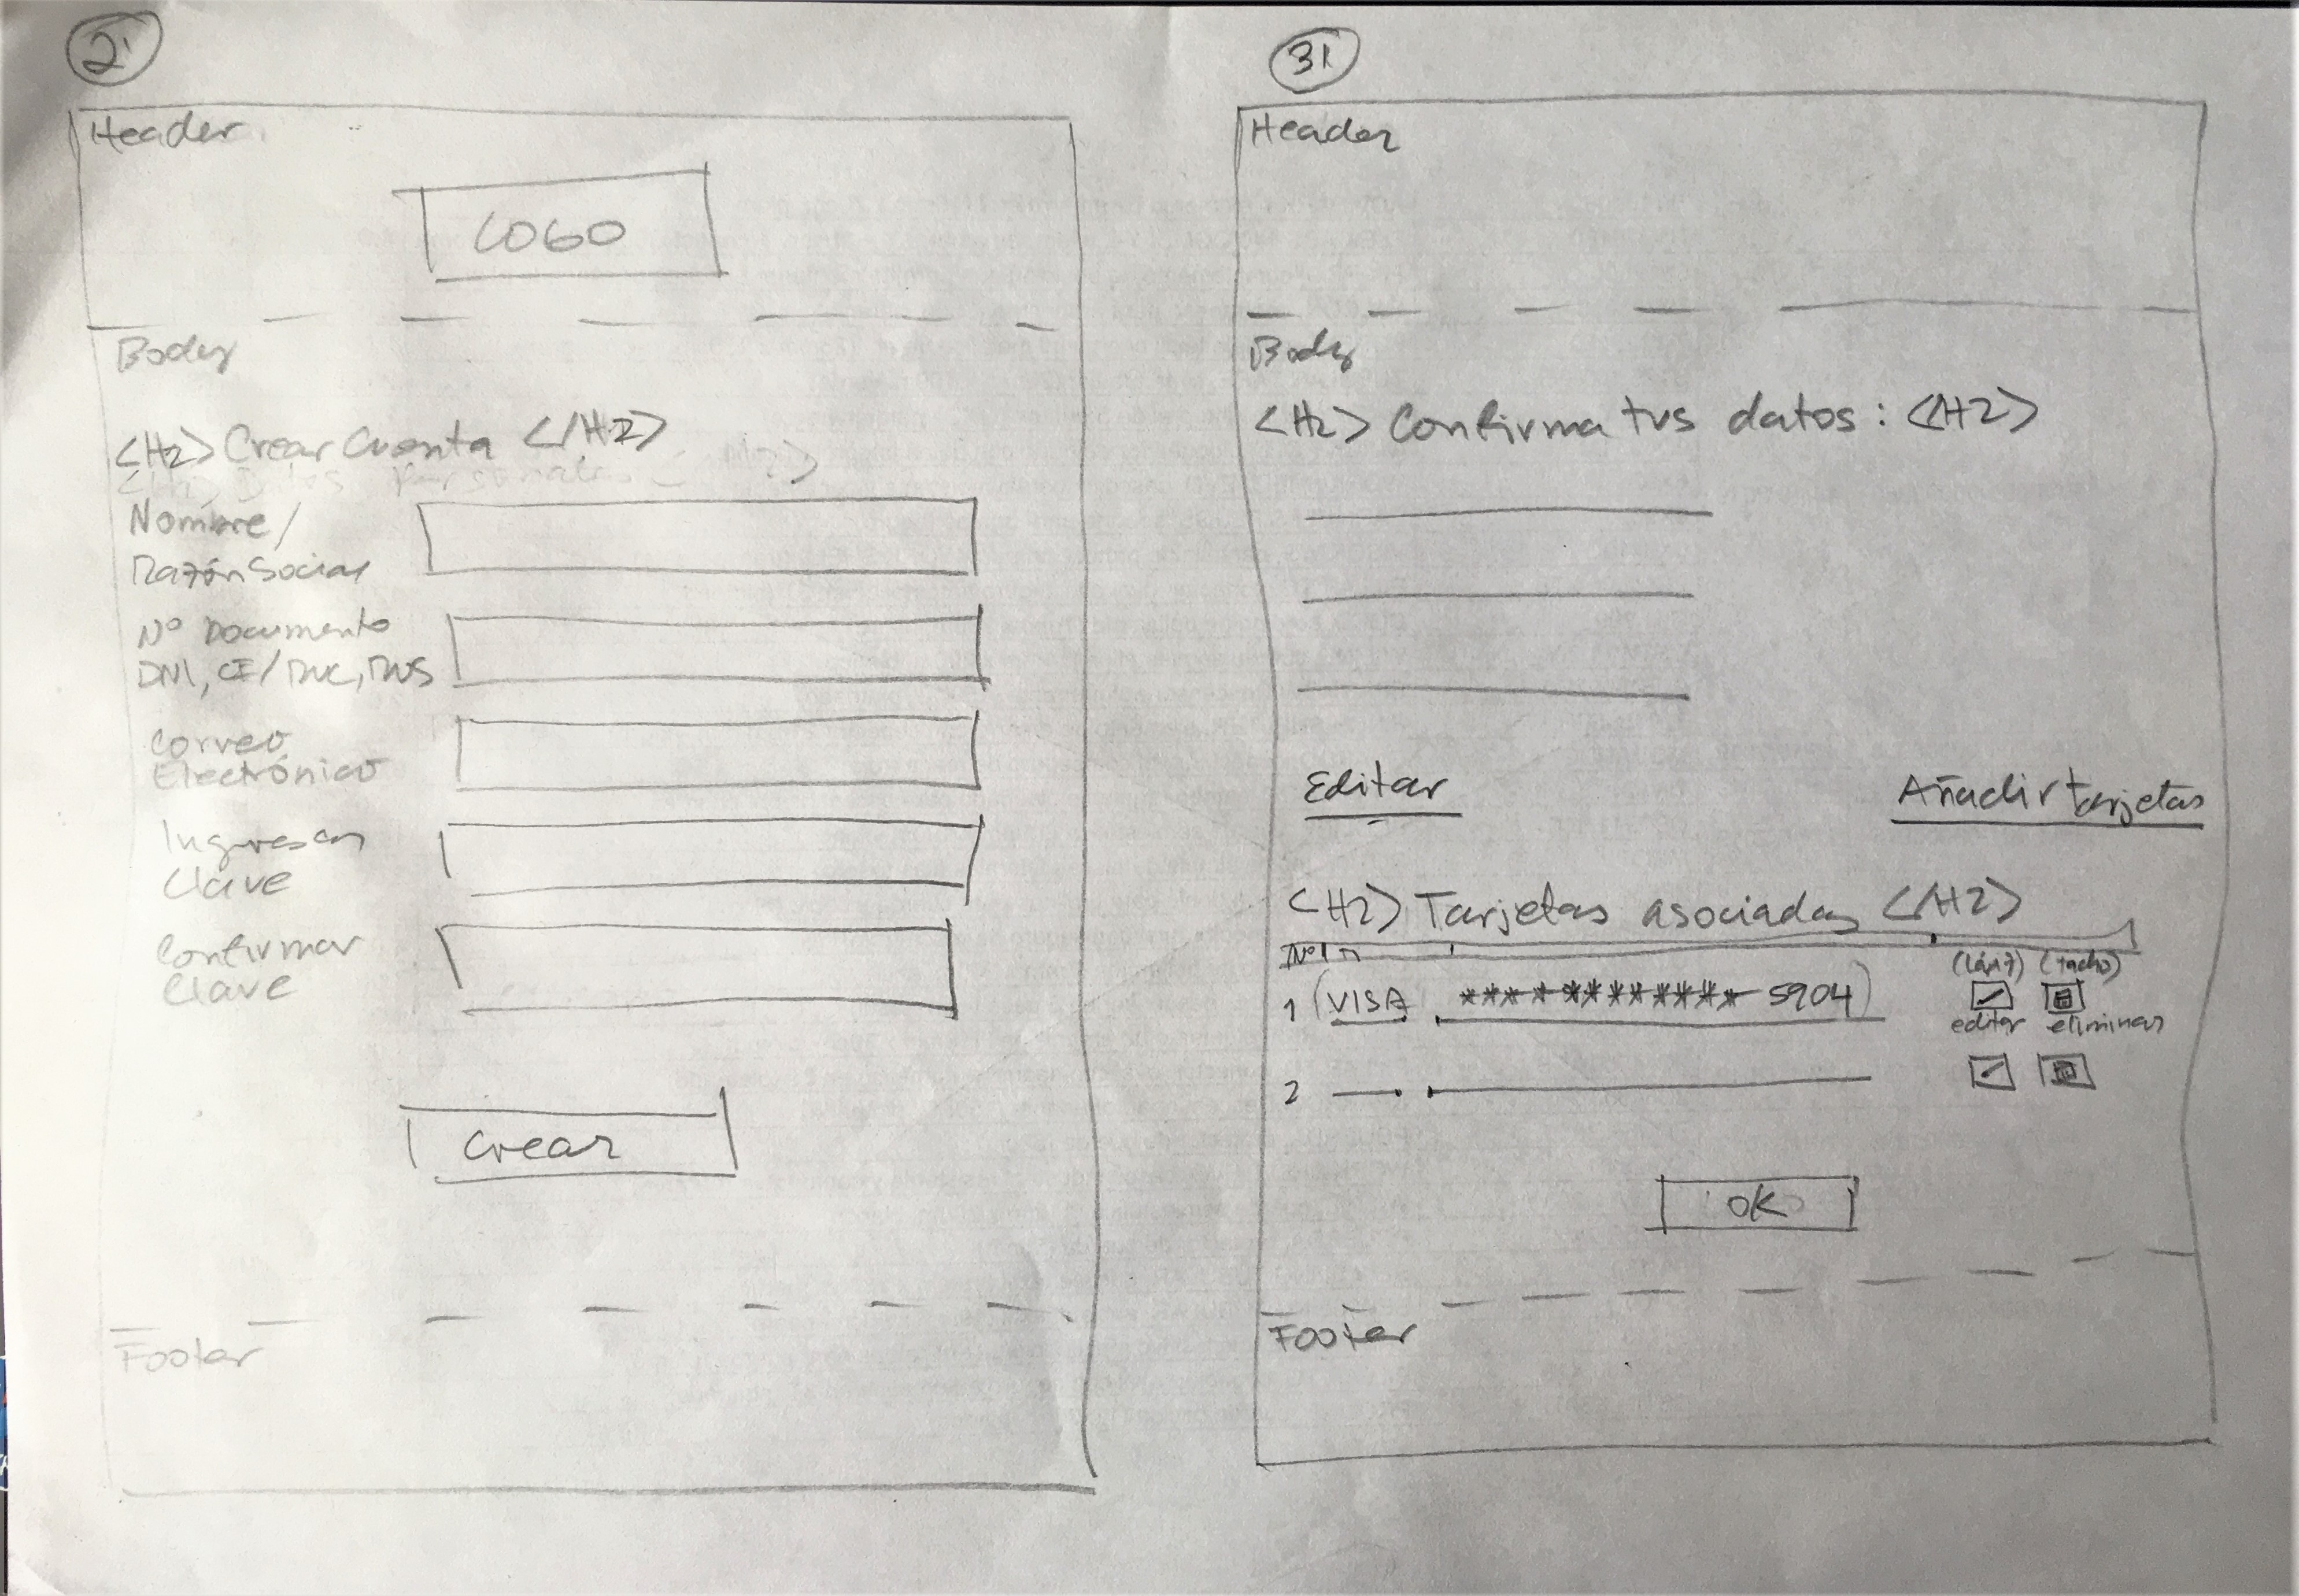 2
Header
LOGO
Body
<H2> Crear Cuenta </H2>
Nombre/
Razón Social
N° Documento
DNI, CE/RUC, RUS
Correo
Electrónico
Ingresar
Clave
Confirmar
Clave
Crear
Footer
31
Header
Body
<H2> Confirma tus datos: <H2>
Editar
Añadir tarjetas
<H2> Tarjetas asociadas </H2>
N°
(lápiz) (tacho)
1 (VISA ************* 5904)
editar eliminar
2
OK
Footer